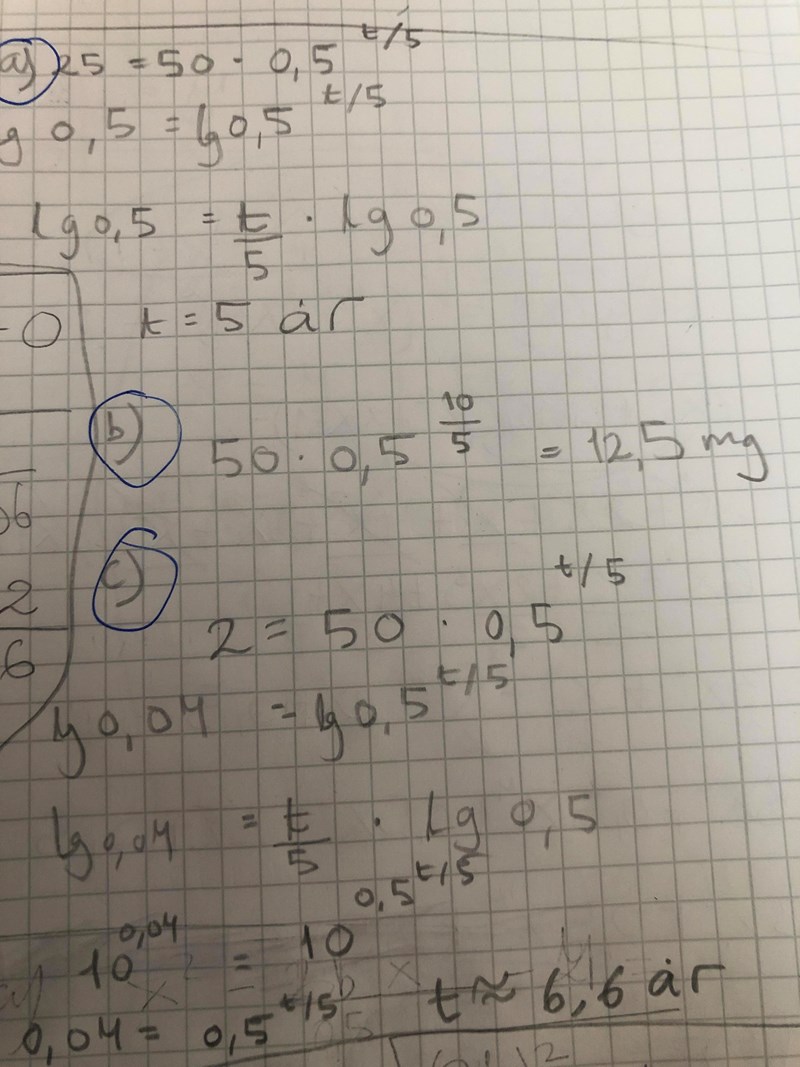 a) 25 = 50 · 0,5^t/5
g 0,5 = lg 0,5^t/5
lg 0,5 = t/5 · lg 0,5
-0
t = 5 år
b) 50 · 0,5^10/5 = 12,5 mg
56
c)
2
2 = 50 · 0,5^t/5
6
lg 0,04 = lg 0,5^t/5
lg 0,04 = t/5 · lg 0,5
10^0,04 = 10^0,5^t/5
0,04 = 0,5^t/5 t ≈ 6,6 år